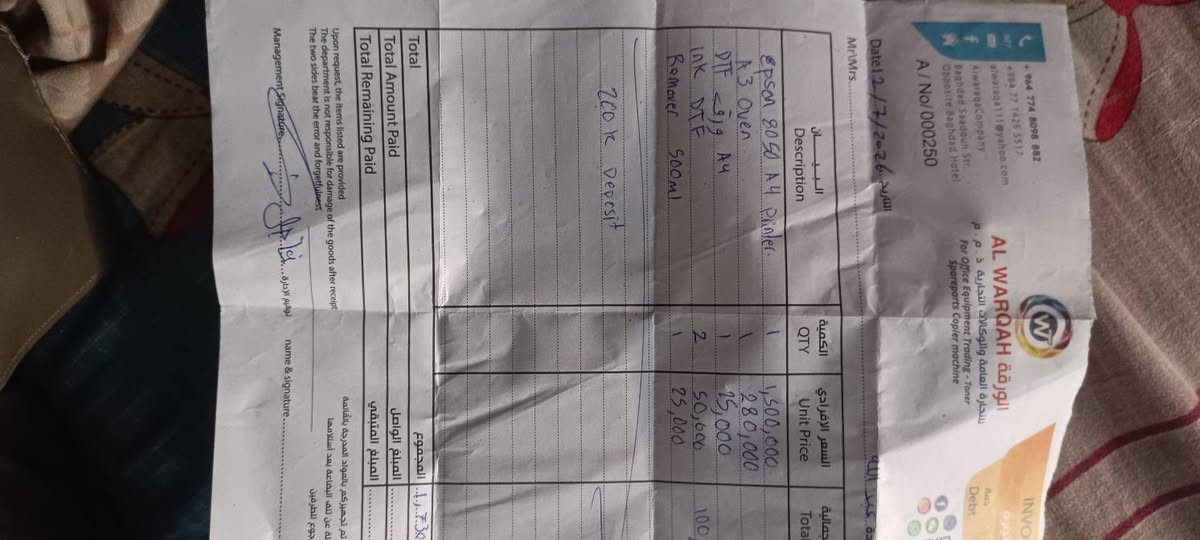 + 964 774 8098 882
+964 77 1425 5517
alwaraqa111@yahoo.com
AlwaraqaCompany
Baghdad Saadoun Str.
Opposite Baghdad Hotel
A / No/000250
الورقة AL WARQAH
للتجارة العامة والوكالات التجارية ذ . م . م
For Office Equipment Trading - Toner
Spareparts Copier machine
INVO
Debt
Date 12/7/2026 التاريخ
Mr\Mrs
البيـــــان الكمية السعر الافرادي
Description QTY Unit Price Total
epson 8050 A4 printer. 1 1,500,000
A3 oven 1 280,000
DTF ورق A4 1 25,000
Ink DTF 2 50,000 100,
Remover 500ml 1 25,000
200k Deposit
Total المجموع
Total Amount Paid المبلغ الواصل
Total Remaining Paid المبلغ المتبقي
Upon request, the items listed are provided
The department is not responsible for damage of the goods after receipt
The two sides bear the error and forgetfulness
تم تجهيزكم بالمواد المدرجة بالقائمة
عن تلف البضاعة بعد استلامها
Management signature توقيع الإدارة name & signature